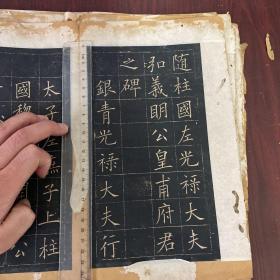 隨柱國左光祿大夫
弘義明公皇甫府君
之碑
銀青光祿大夫行
太子左庶子上柱
國黎
公